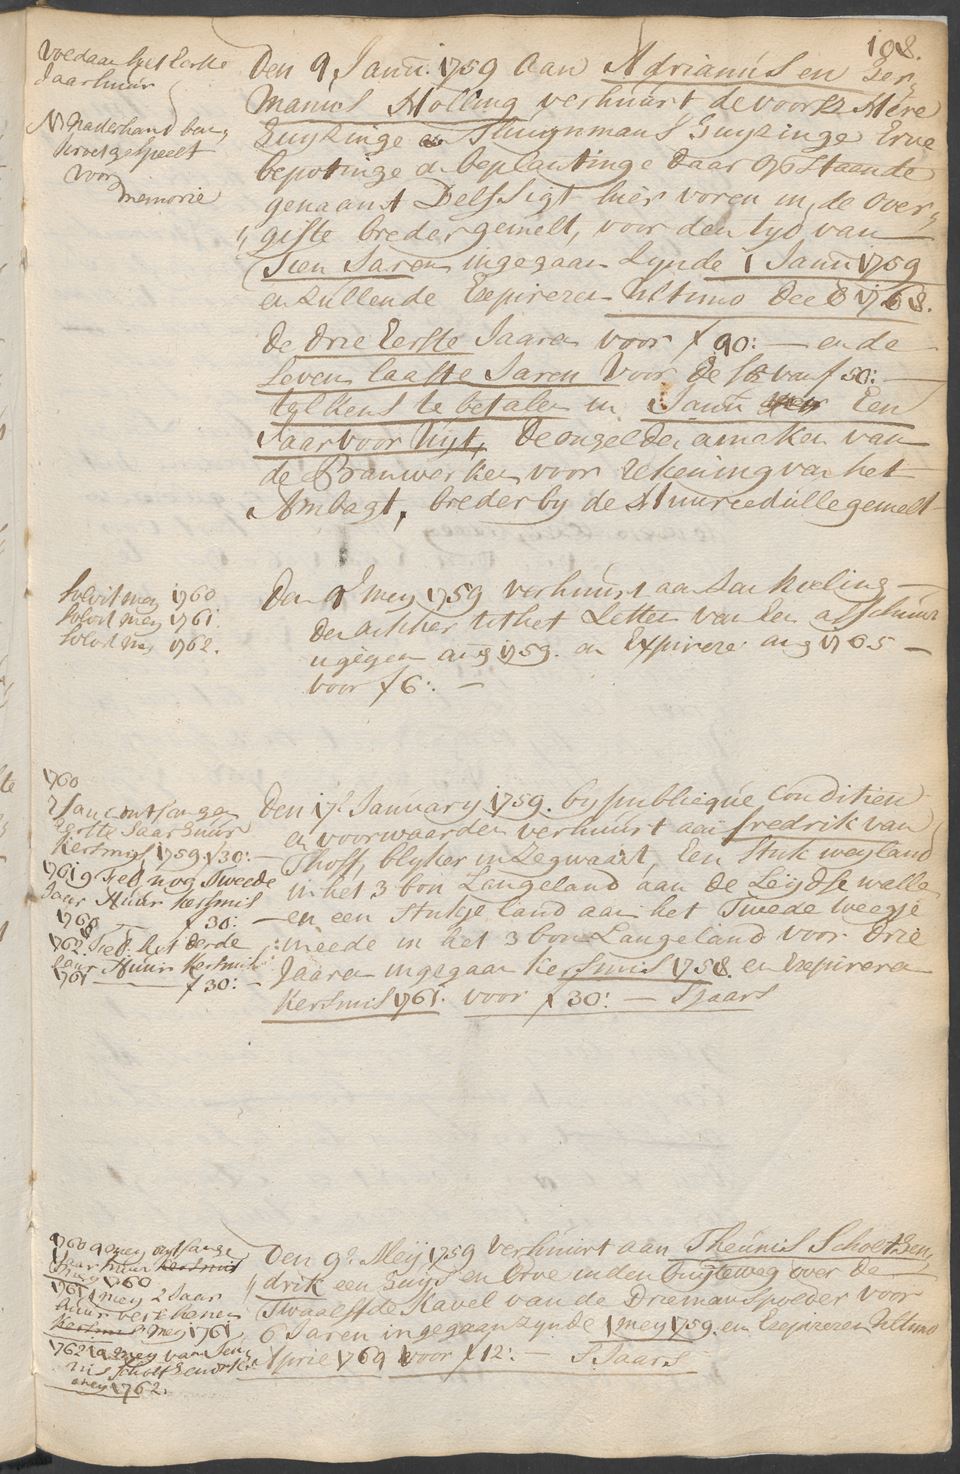 108.
voldaan het Eerste
Jaar huur
NB naderhand
voor
memorie
Den 9 Janu: 1759 aan Adrianus en Her„
manus Holling verhuurt de voorsz Here
Huyzinge en Thuynmans Huyzinge Erve
bepotinge en beplantinge daar op staende
genaamt Delfsigt hier voren in de over„
„gifte breder gemelt, voor den tyd van
Tien Jaren ingegaan zynde 1 Janu 1759
en zullende Expireren Ultimo Dec 1768.
de drie Eerste Jaaren voor f 90:— en de
Seven laaste Jaren voor de van f 50:—
telkens te betalen in Janu Een
Jaar voor uyt, de ongelden a maken van
de Brauwerken voor rekening van het
Ambagt, breder by de Huurcedulle gemelt
solvit mey 1760
solvit mey 1761.
solvit mey 1762.
Den 9 mey 1759 verhuurt aan Jan Keeling
den akker tot het Zetten van Een
ingegaen aug 1759. en Expireren aug 1765
voor f 6:—
1760
7 Jan ontfangen
Eerste Jaar huur
Kersmis 1759 f 30:—
1761 9 Feb nog Tweede
Jaar Huur Kersmis
1760 — f 30:—
1762 Feb. het derde
Jaar Huur Kersmis
1761 — f 30:—
Den 17e January 1759. by publieque Conditien
en voorwaarden verhuurt aan fredrik van
Thoff, blyker in Zegwaart, Een Stuk weyland
in het 3 bon Langeland aan de Leydse walle
en een Stukje land aan het Twede weegje
meede in het 3 bon Langeland voor Drie
Jaaren ingegaan Kersmis 1758. en Expireren
Kersmis 1761. voor f 30:— Sjaars
1760 9 mey ontfange
1 Jaar huur Kersmis
mey 1760
1761 mey 2 Jaar
huur verschenen
Kersmis mey 1761
1762 mey van Teu„
nis Scholt Hendrik
mey 1762.
Den 9e Meij 1759 verhuurt aan Theunis Scholt Hen„
„drik een Huys en Erve in den buyteweg over de
Twaalfde Kavel van de Driemanspolder voor
6 Jaren ingegaan zynde 1 mey 1759. en Expireren Ultimo
April 1769 voor f 12:— SJaars